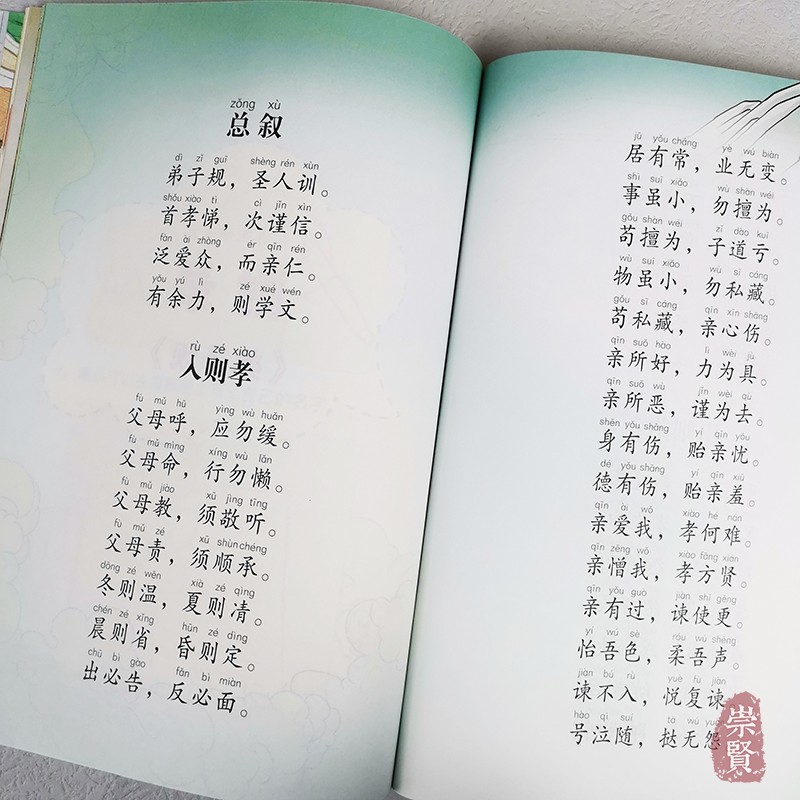 zǒng xù
总叙
dì zǐ guī shèng rén xùn
弟子规，圣人训。
shǒu xiào tì cì jǐn xìn
首孝悌，次谨信。
fàn ài zhòng ér qīn rén
泛爱众，而亲仁。
yǒu yú lì zé xué wén
有余力，则学文。
rù zé xiào
入则孝
fù mǔ hū yìng wù huǎn
父母呼，应勿缓。
fù mǔ mìng xíng wù lǎn
父母命，行勿懒。
fù mǔ jiào xū jìng tīng
父母教，须敬听。
fù mǔ zé xū shùn chéng
父母责，须顺承。
dōng zé wēn xià zé qìng
冬则温，夏则凊。
chén zé xǐng hūn zé dìng
晨则省，昏则定。
chū bì gào fǎn bì miàn
出必告，反必面。
jū yǒu cháng yè wú biàn
居有常，业无变。
shì suī xiǎo wù shàn wéi
事虽小，勿擅为。
gǒu shàn wéi zǐ dào kuī
苟擅为，子道亏。
wù suī xiǎo wù sī cáng
物虽小，勿私藏。
gǒu sī cáng qīn xīn shāng
苟私藏，亲心伤。
qīn suǒ hào lì wèi jù
亲所好，力为具。
qīn suǒ wù jǐn wèi qù
亲所恶，谨为去。
shēn yǒu shāng yí qīn yōu
身有伤，贻亲忧。
dé yǒu shāng yí qīn xiū
德有伤，贻亲羞。
qīn ài wǒ xiào hé nán
亲爱我，孝何难。
qīn zēng wǒ xiào fāng xián
亲憎我，孝方贤。
qīn yǒu guò jiàn shǐ gēng
亲有过，谏使更。
yí wú sè róu wú shēng
怡吾色，柔吾声。
jiàn bù rù yuè fù jiàn
谏不入，悦复谏
hào qì suí tà wú yuàn
号泣随，挞无怨
崇賢